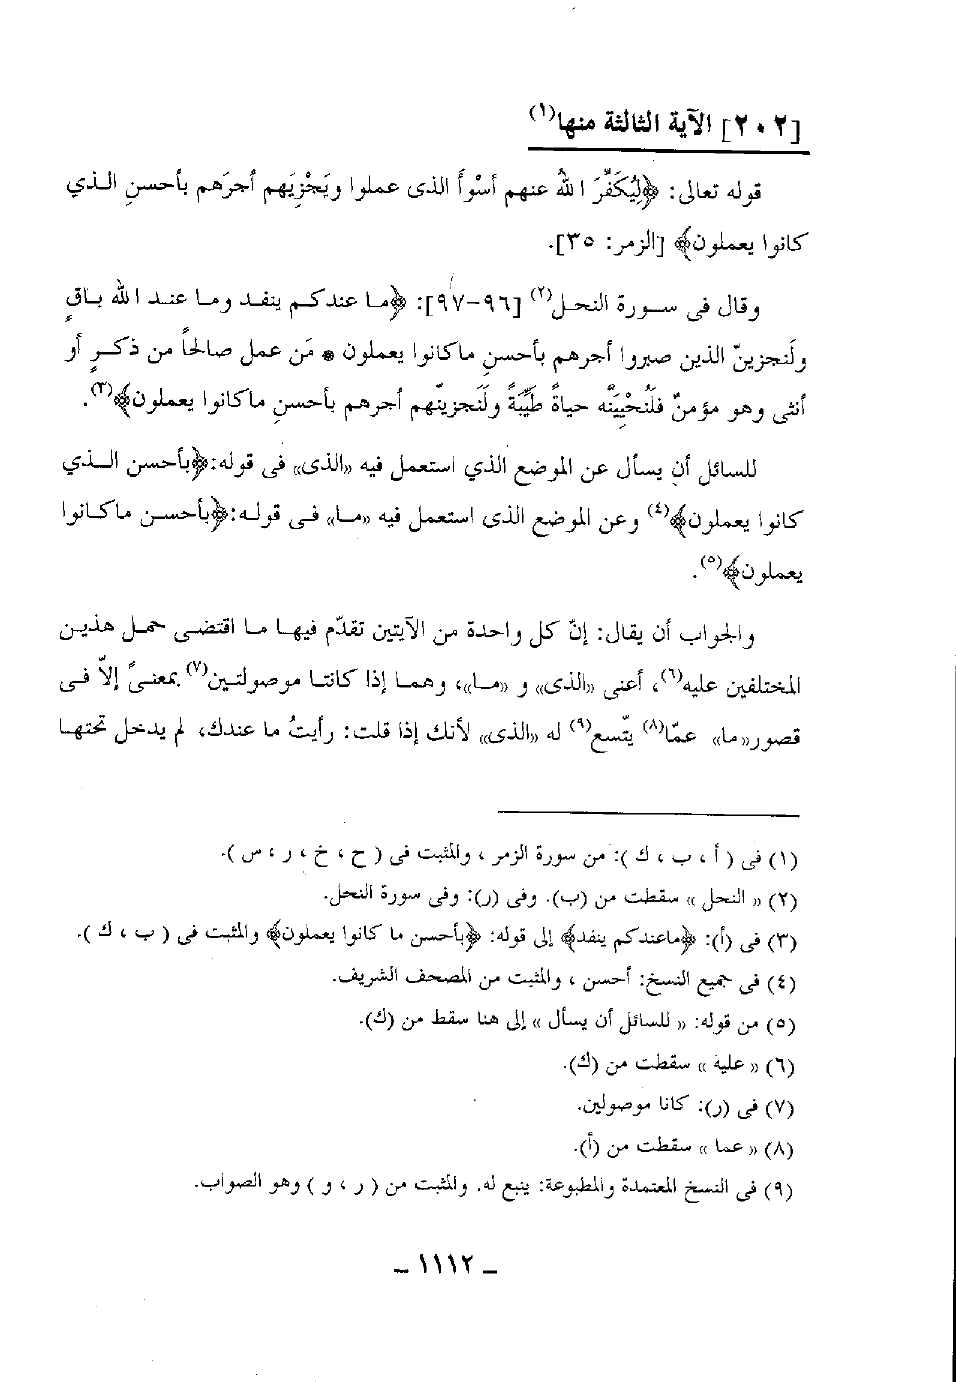 [٢٠٢] الآية الثالثة منها(١)
قوله تعالى: ﴿لِيُكَفِّرَ الله عنهم أسْوأَ الذى عملوا ويَجْزِيَهم أجرَهم بأحسنِ الـذي
كانوا يعملون﴾ [الزمر: ٣٥].
وقال فى سـورة النحـل(٢) [٩٦-٩٧]: ﴿مـا عندكـم ينفد ومـا عنـد الله بـاقٍ
ولَنجزينّ الذين صبروا أجرهم بأحسنِ ماكانوا يعملون * مَن عمل صالحاً من ذكـرٍ أو
أنثى وهو مؤمنٌ فلَنُحْيِيَنَّه حياةً طيِّبَةً ولَنَجزينّهم أجرهم بأحسنِ ماكانوا يعملون﴾(٣).
للسائل أن يسأل عن الموضع الذي استعمل فيه «الذى» فى قوله:﴿بأحسن الـذي
كانوا يعملون﴾(٤) وعن الموضع الذى استعمل فيه «مـا» فـى قولـه:﴿بأحسـن ماكـانوا
يعملون﴾(٥).
والجواب أن يقال: إنّ كل واحدة من الآيتين تقدّم فيهـا مـا اقتضـى حمـل هذيـن
المختلفين عليه(٦)، أعنى «الذى» و «مـا»، وهمـا إذا كانتـا موصولتـين(٧) بمعنىً إلاّ فـى
قصور«ما» عمّا(٨) يتّسع(٩) له «الذى» لأنك إذا قلت: رأيتُ ما عندك، لم يدخل تحتهـا
(١) فى ( أ ، ب ، ك ): من سورة الزمر ، والمثبت فى ( ح ، خ ، ر ، س ).
(٢) « النحل » سقطت من (ب). وفى (ر): وفى سورة النحل.
(٣) فى (أ): ﴿ماعندكم ينفد﴾ إلى قوله: ﴿بأحسن ما كانوا يعملون﴾ والمثبت فى ( ب ، ك ).
(٤) فى جميع النسخ: أحسن ، والمثبت من المصحف الشريف.
(٥) من قوله: « للسائل أن يسأل » إلى هنا سقط من (ك).
(٦) « عليه » سقطت من (ك).
(٧) فى (ر): كانا موصولين.
(٨) « عما » سقطت من (أ).
(٩) فى النسخ المعتمدة والمطبوعة: ينبع له. والمثبت من ( ر ، و ) وهو الصواب.
- ١١١٢ -